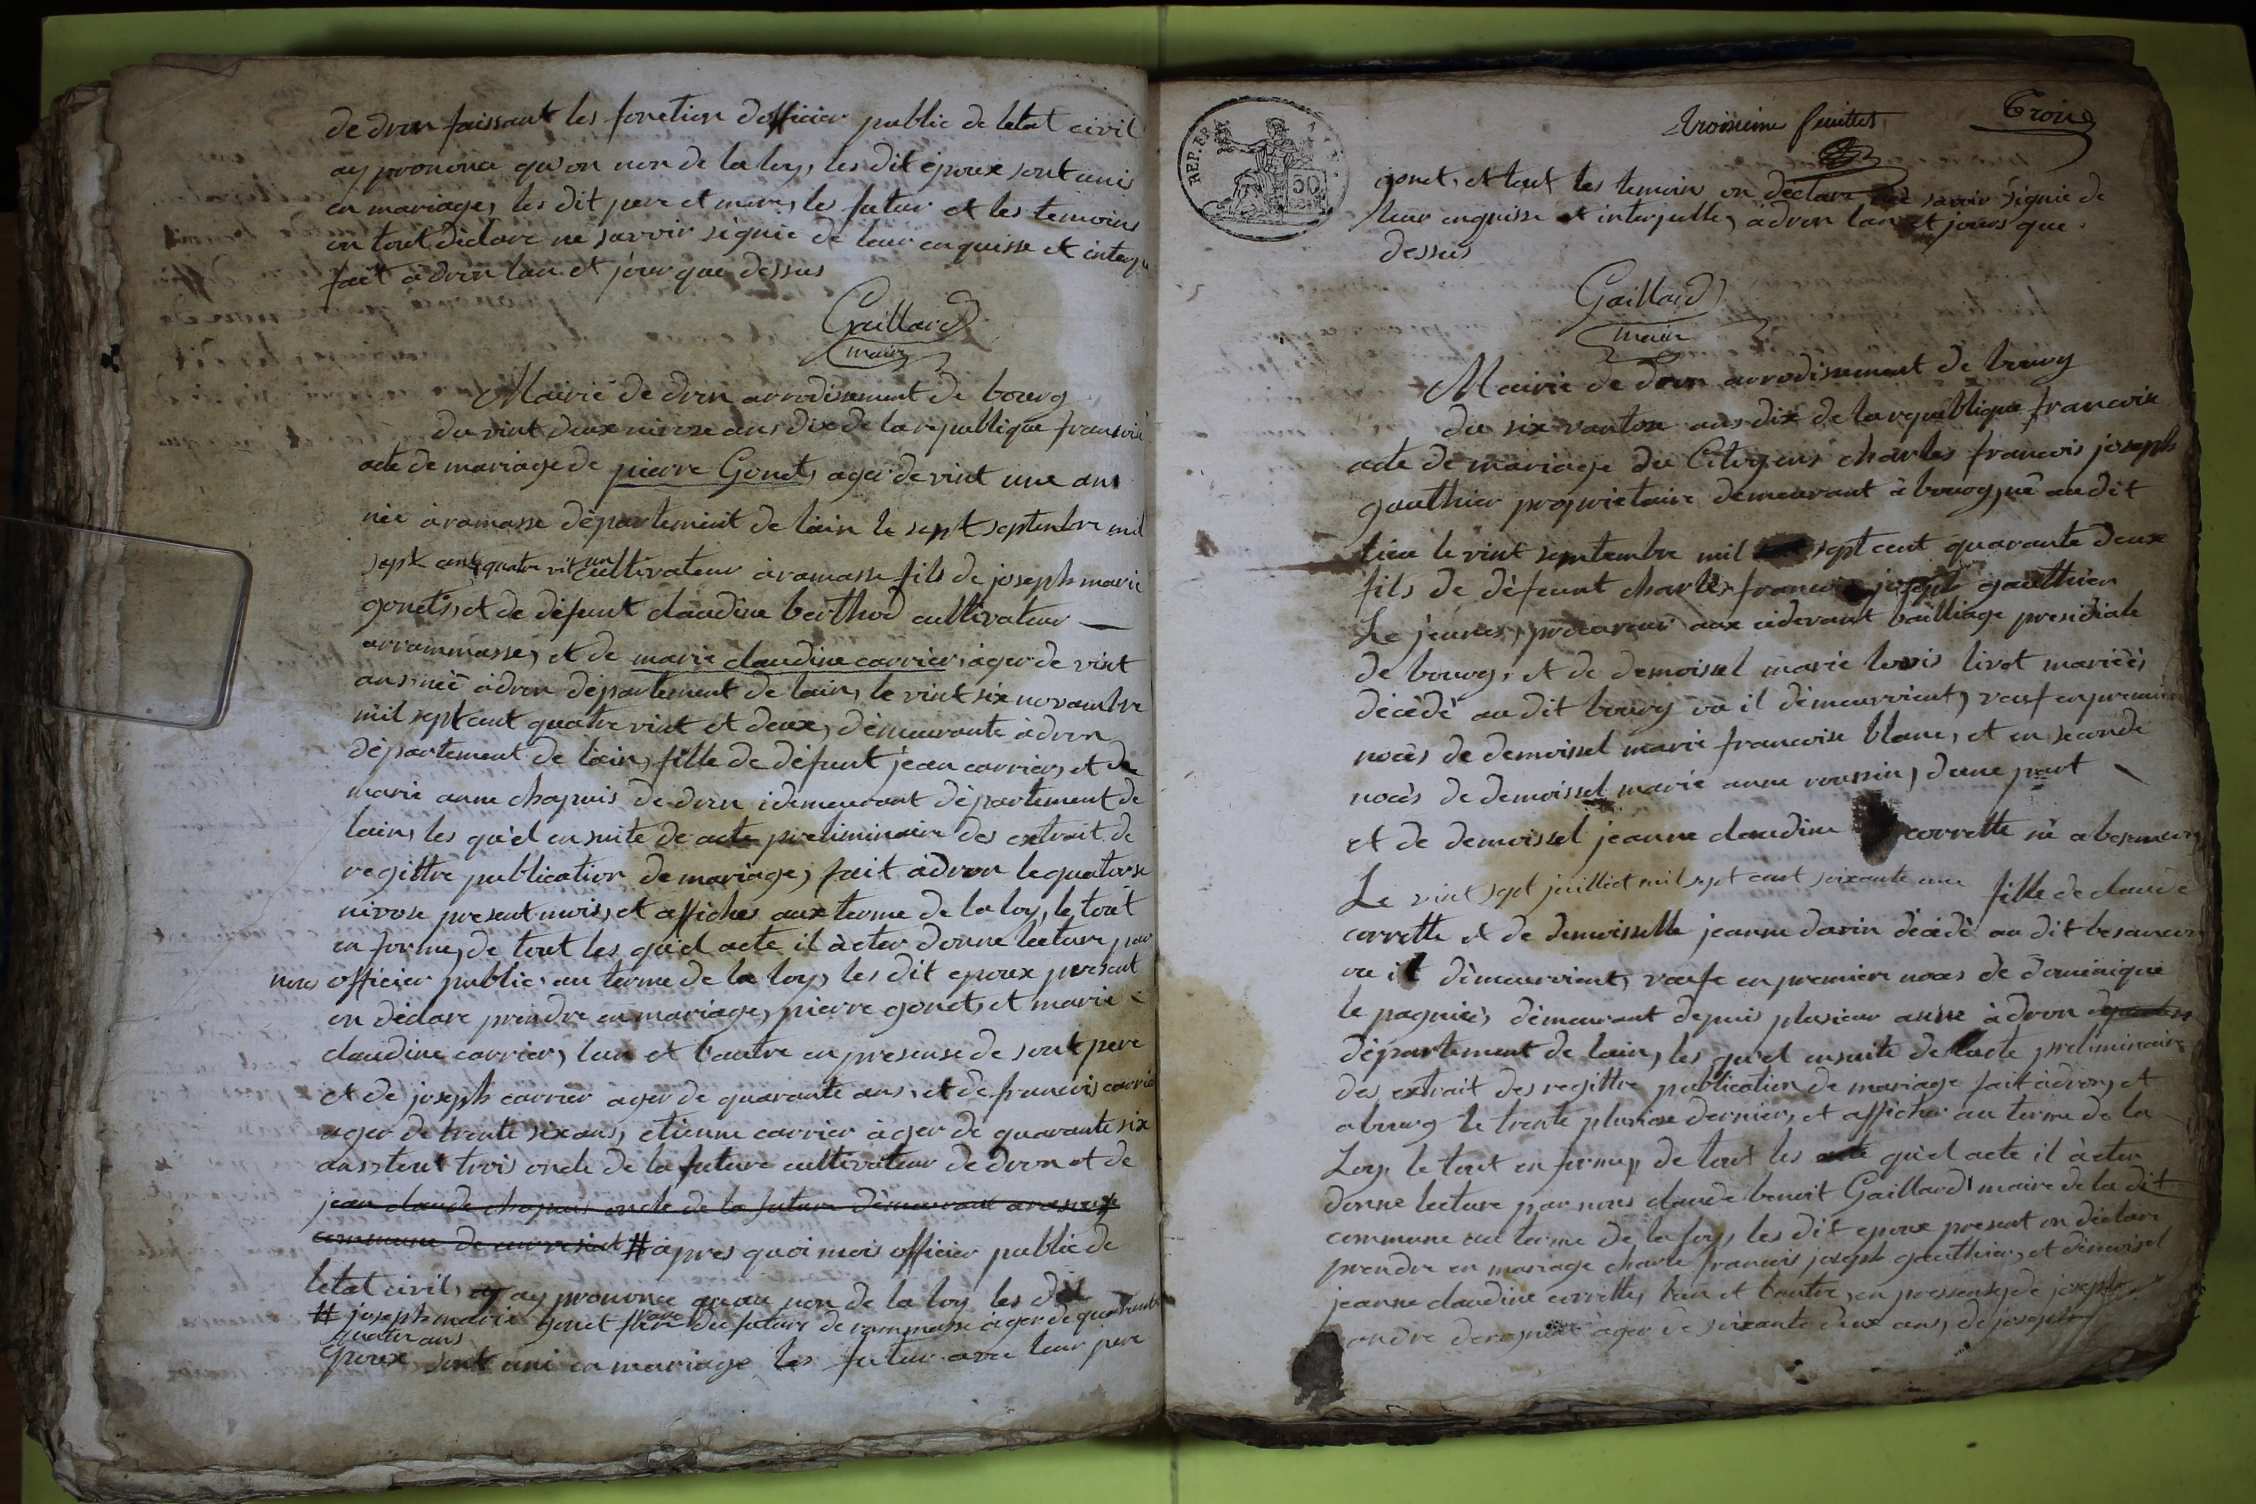 de dron faissant les fonction dofficier public de letat civil
ay prononce qu'on non de la loy, les dit époux sont unis
en mariage, les dit pere et mere, les futur et les temoins
on tout déclare ne savoir signié de leur enquisse et interp
fait à dron lan et jour que dessus
Gaillard
maire
Mairie de dron arrodissement de bourg
du vint deux nivose ans dix de la republique francoise
acte de mariage de pierre Gonet, ager de vint une ans
née à ramasse département de lain le sept septembre mil
sept cent quatre vit un cultivateur à ramasse fils de joseph marie
gonets, et de défunt claudine berthod cultivateur
arrammasse, et de marie claudine carrier, àger de vint
ans, néé à dron département de lain, le vint six novambre
mil sept cent quatre vint et deux, démeurante à dron
département de lain, fille de défunt jean carrier, et de
marie anne chapuis de dron idemeurant département de
lain, les qu'el en suite de acte preliminaire des extrait de
regittre publication de mariage, fait à dron le quatorse
nivose present mois, et affiches aux terme de la loy, le tout
en forme, de tout les qu'el acte il à eter donne lecture par
nous officier public, au terme de la loy, les dit epoux present
on déclare prendre en mariage, pierre gonet, et marie
claudine carrier, lun et l'autre en presense de sont pere
et de joseph carrier ager de quarante ans, et de francois carrie
ager de trente six ans, etienne carrier àger de quarante six
ans, tout trois oncle de la future cultivateur de dron et de
jean claude chapuis oncle de la future démeurant
commune de # àpres quoi mois officier public de
letat civil, ay prononce qu'au non de la loy les dit
# joseph marie gonet frere du future de rammasse àger de
quatre ans
époux sont uni en mariage les futur avec leur pere
troisieme feuillet
Trois
REP. FRA.
50
gonet, et tout les temoin on déclare ne savoir signié de
leur enquisse et interpelle, à dron lan et jours que
dessus
Gaillard
maire
Mairie de dron arrodissement de bourg
du six vantose ans dix de la republique francoise
acte de mariage du Citoyens charles francois joseph
gauthier propriétaire demeurant à bourg, né au dit
lieu le vint semtembre mil sept cent quarante deux
fils de défunt charles francois joseph gauthier
Le jeune, procureur aux cidevant bailliage presidiale
de bourg, et de demoissel marie lovis livet mariéés
décédé au dit bourg où il démeurrient, veuf en premier
nocès de demoissel marie francoise blanc, et en seconde
nocès de demoissel marie anne roussin, dune part
et de demoissel jeanne claudine corrette né a besencon
Le vint sept juilliet mil sept cent soixante une fille de claude
corrette et de demoisselle jeanne darin décédé au dit besancon
ou il démeurrient, veufe en premier noces de dominique
le pagniés, démeurant depuis plusieur anné à dron
département de lain, les qu'el ensuite de lacte préliminaire
des extrait des regittre publication de mariage fait à dron, et
a bourg le trente pluviose dernier, et afficher au terme de la
Loy, le tout en forme, de tout les qu'el acte il à eter
donné lecture par nous claude benoit Gaillard, maire de la dit
commune au terme de la loy, les dit epoux present on déclare
prendre en mariage charle francois joseph gauthier, et démoisel
jeanne claudine corrette, lun et l'autre, en pressense, de joseph
andre àger de soixante deux ans, de joseph